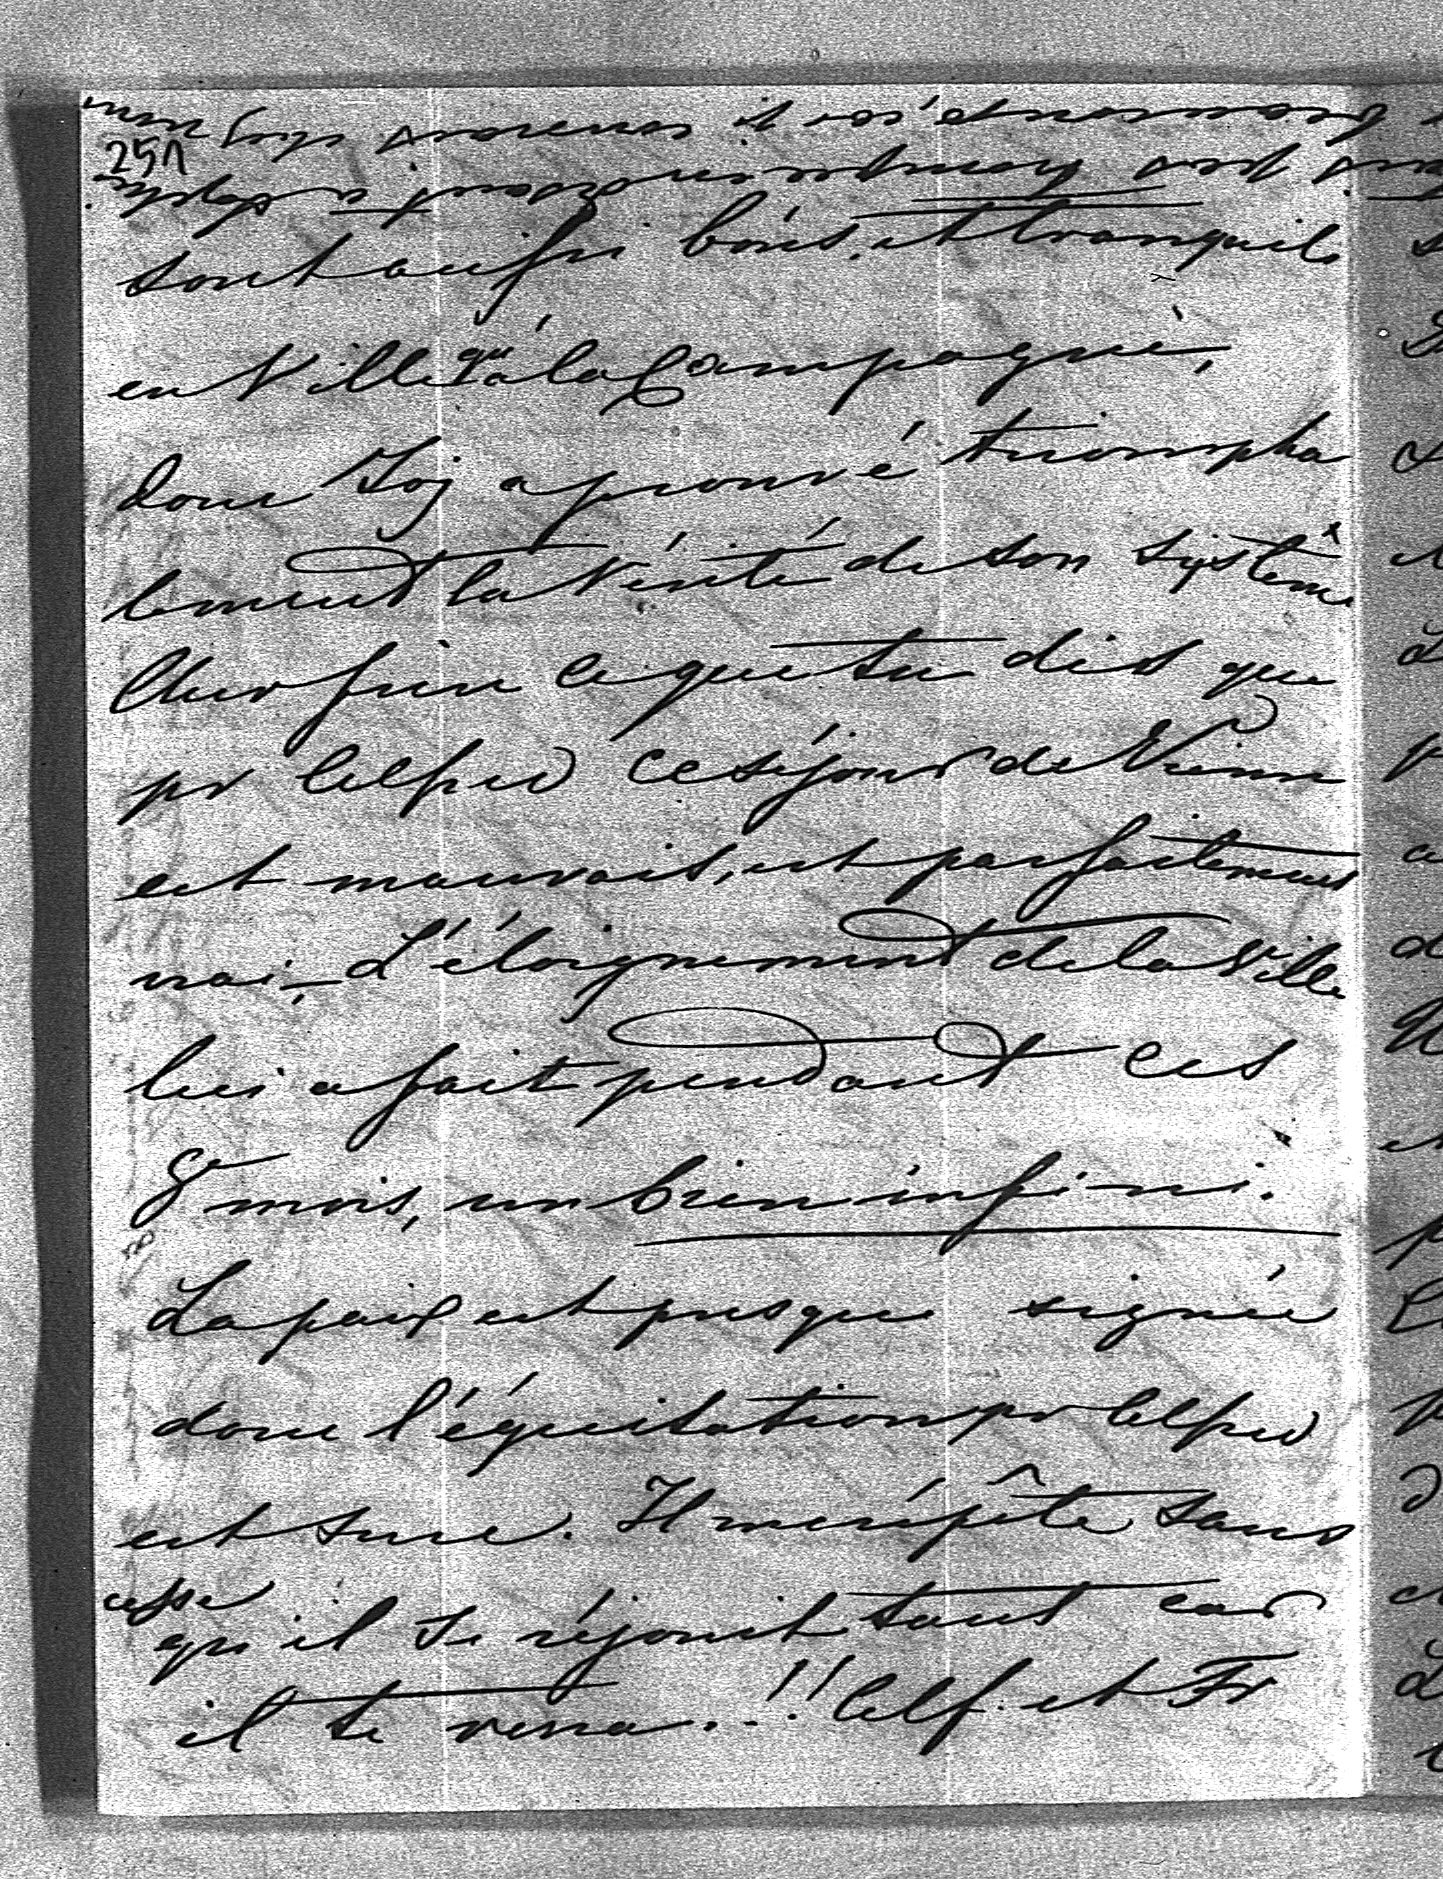 251
sont aussi bons et tranquils
en Ville qu'à la Campagne,
donc Loj a prouvé triompha
lement la Vérité de son système
Cher frère ce que tu dis que
pr Alfred ce séjour de Vienne
est mauvais, est parfaitement
vrai, L'éloignement de la Ville
lui a fait pendant ces
mois, un bien infini.
La paix est presque signée
donc l'équitation pr Alfred
est sure. Il me répète sans
cesse
qu'il se réjouit tant car
il te verra...!! Alf. et Fr